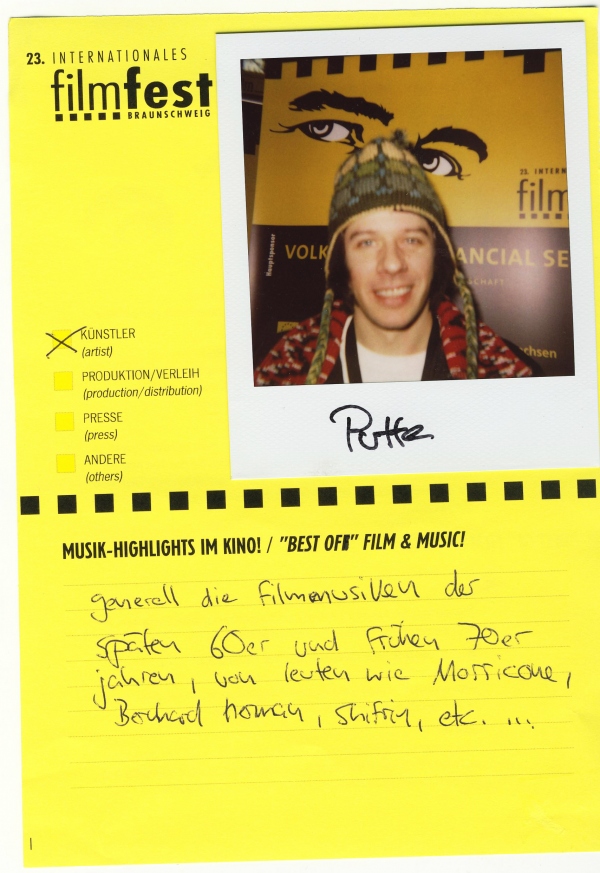 23. INTERNATIONALES
filmfest
BRAUNSCHWEIG
23. INTERN
film
Hauptsponsor
VOLK ANCIAL SE
CHAFT
chsen
KÜNSTLER
(artist)
PRODUKTION/VERLEIH
(production/distribution)
PRESSE
(press)
ANDERE
(others)
MUSIK-HIGHLIGHTS IM KINO! / "BEST OF" FILM & MUSIC!
generell die Filmmusiken der
späten 60er und frühen 70er
jahren, von leuten wie Morricone,
Herman, Shifrin, etc. ...